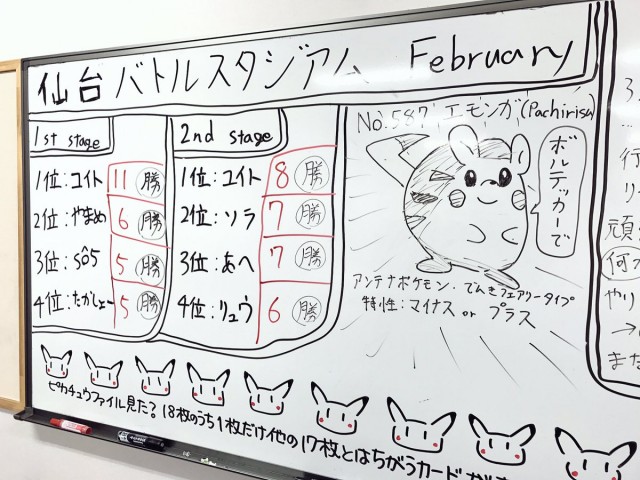 仙台バトルスタジアム February
1st stage
1位:コイト 11 勝
2位:やまめ 6 勝
3位:sô5 5 勝
4位:たかしょー 5 勝
2nd stage
1位:コイト 8 勝
2位:ソラ 7 勝
3位:あへ 7 勝
4位:リュウ 6 勝
No.587 エモンガ(Pachirisu)
ボルテッカーで
アンテナポケモン・でんきフェアリータイプ
特性:マイナス or プラス
ピカチュウファイル見た? 18枚のうち1枚だけ他の17枚とはちがうカードが
3.
行
リ
頑
何
やり
→
また